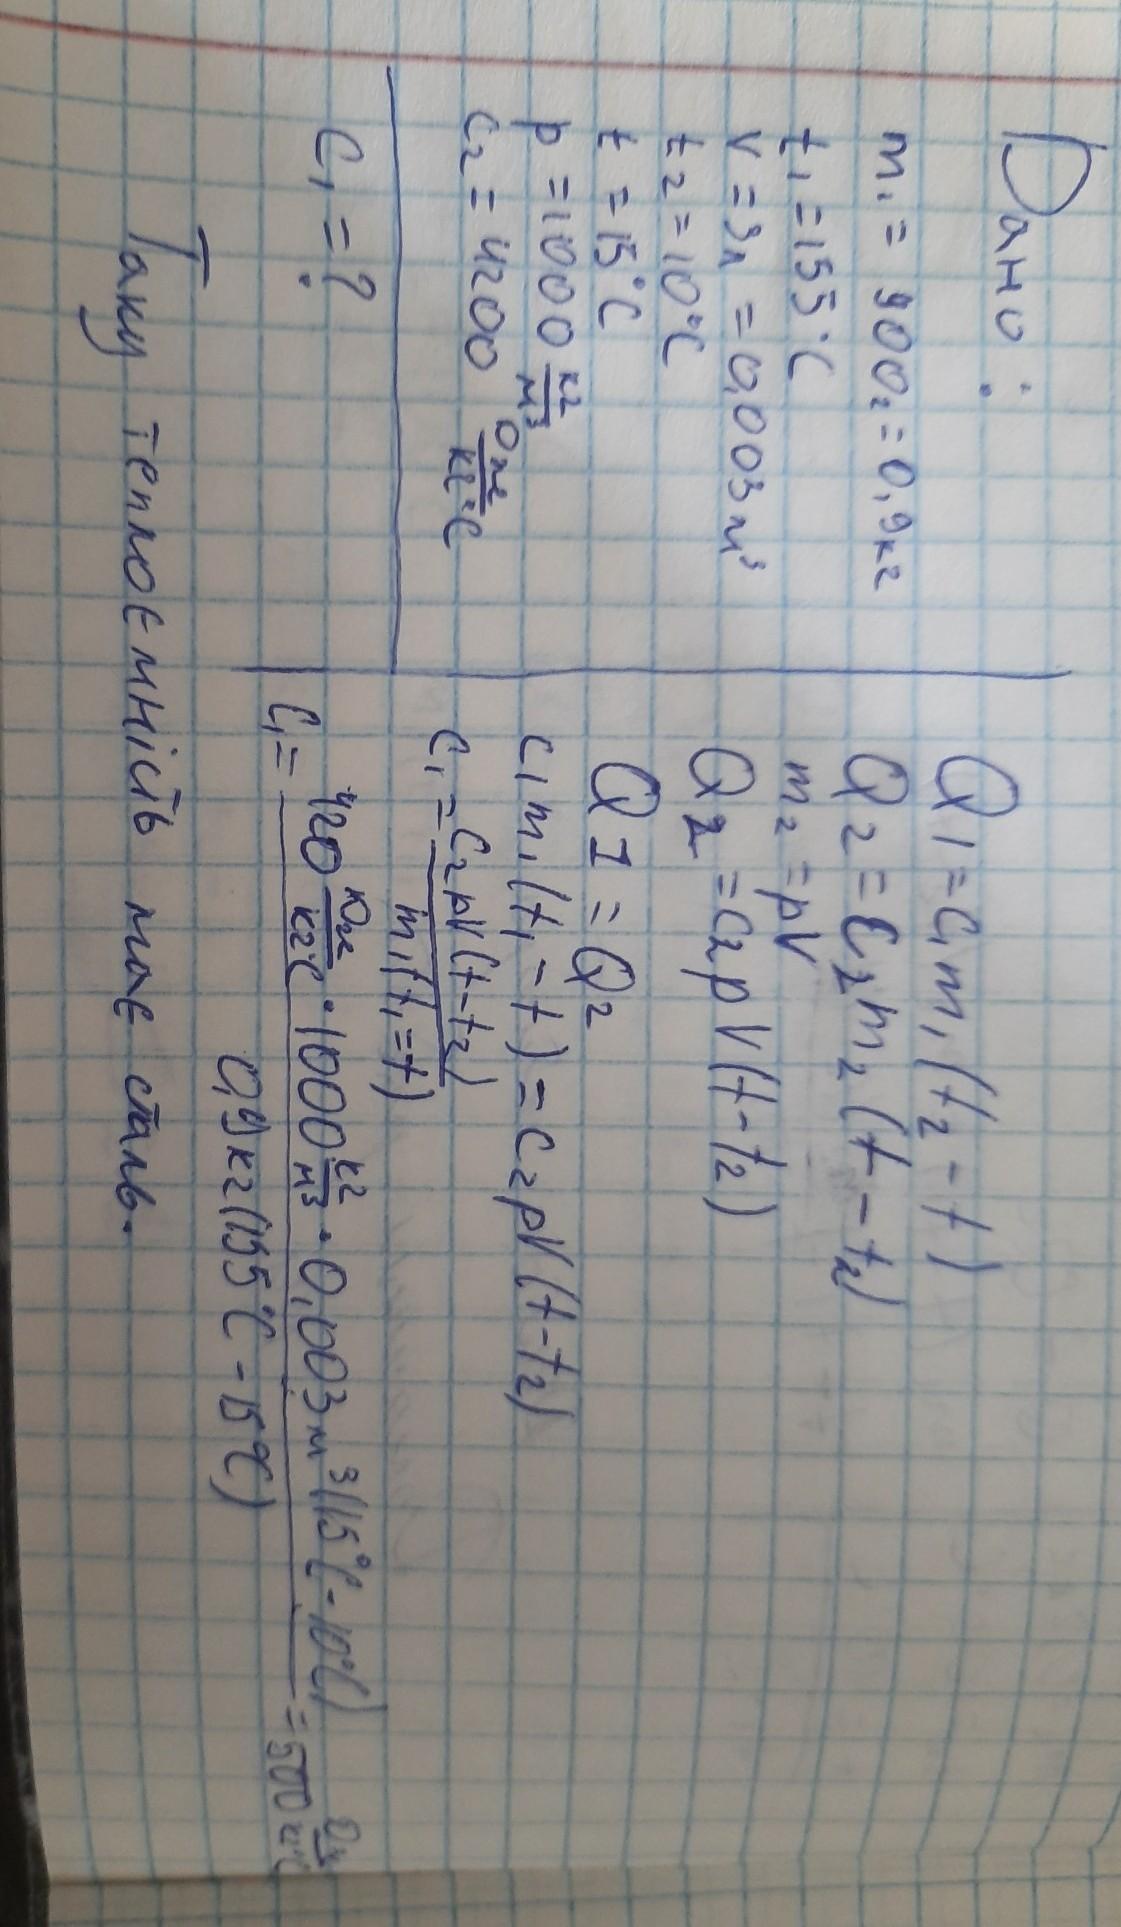 Дано:
m₁ = 900г = 0,9кг
t₁ = 155°C
V = 3л = 0,003м³
t₂ = 10°C
t = 15°C
p = 1000 кг/м³
c₂ = 4200 Дж/кг°C
C₁ = ?
Q1 = c₁m₁(t₂ - t)
Q2 = C₂m₂(t - t₂)
m₂ = pV
Q2 = c₂pV(t - t₂)
Q1 = Q2
c₁m₁(t₁ - t) = c₂pV(t - t₂)
c₁ = c₂pV(t - t₂)/m₁(t₁ = t)
C₁ = 420 Дж/кг°C · 1000 кг/м³ · 0,003м³(15°C - 10°C)/0,9кг(155°C - 15°C) = 500 Дж/кг°C
Таку теплоємність має сталь.